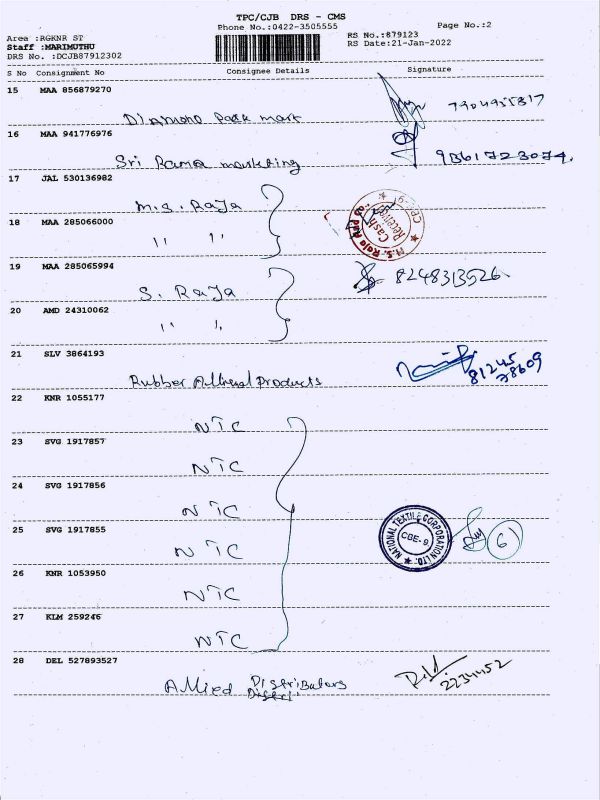 TPC/CJB DRS - CMS
Phone No.:0422-3505555
Page No.:2
Area :RGKNR ST
RS No.:879123
Staff :MARIMUTHU
RS Date:21-Jan-2022
DRS No. :DCJB87912302
S No Consignment No Consignee Details Signature
15 MAA 856879270
Diamond Park mart 7904955317
16 MAA 941776976
Sri Rama marketing 9361723074.
17 JAL 530136982
M.S. Raja
18 MAA 285066000
" "
Cash Received
CBE-9
19 MAA 285065994
S. Raja 8248313526
20 AMD 24310062
" "
21 SLV 3864193
Rubber Allied Products 81245 38609
22 KNR 1055177
NTC
23 SVG 1917857
NTC
24 SVG 1917856
NTC
25 SVG 1917855
NTC
NATIONAL TEXTILE CORPORATION LTD.
CBE-9
6)
26 KNR 1053950
NTC
27 KLM 259246
NTC
28 DEL 527893527
Allied Distributors 2234452